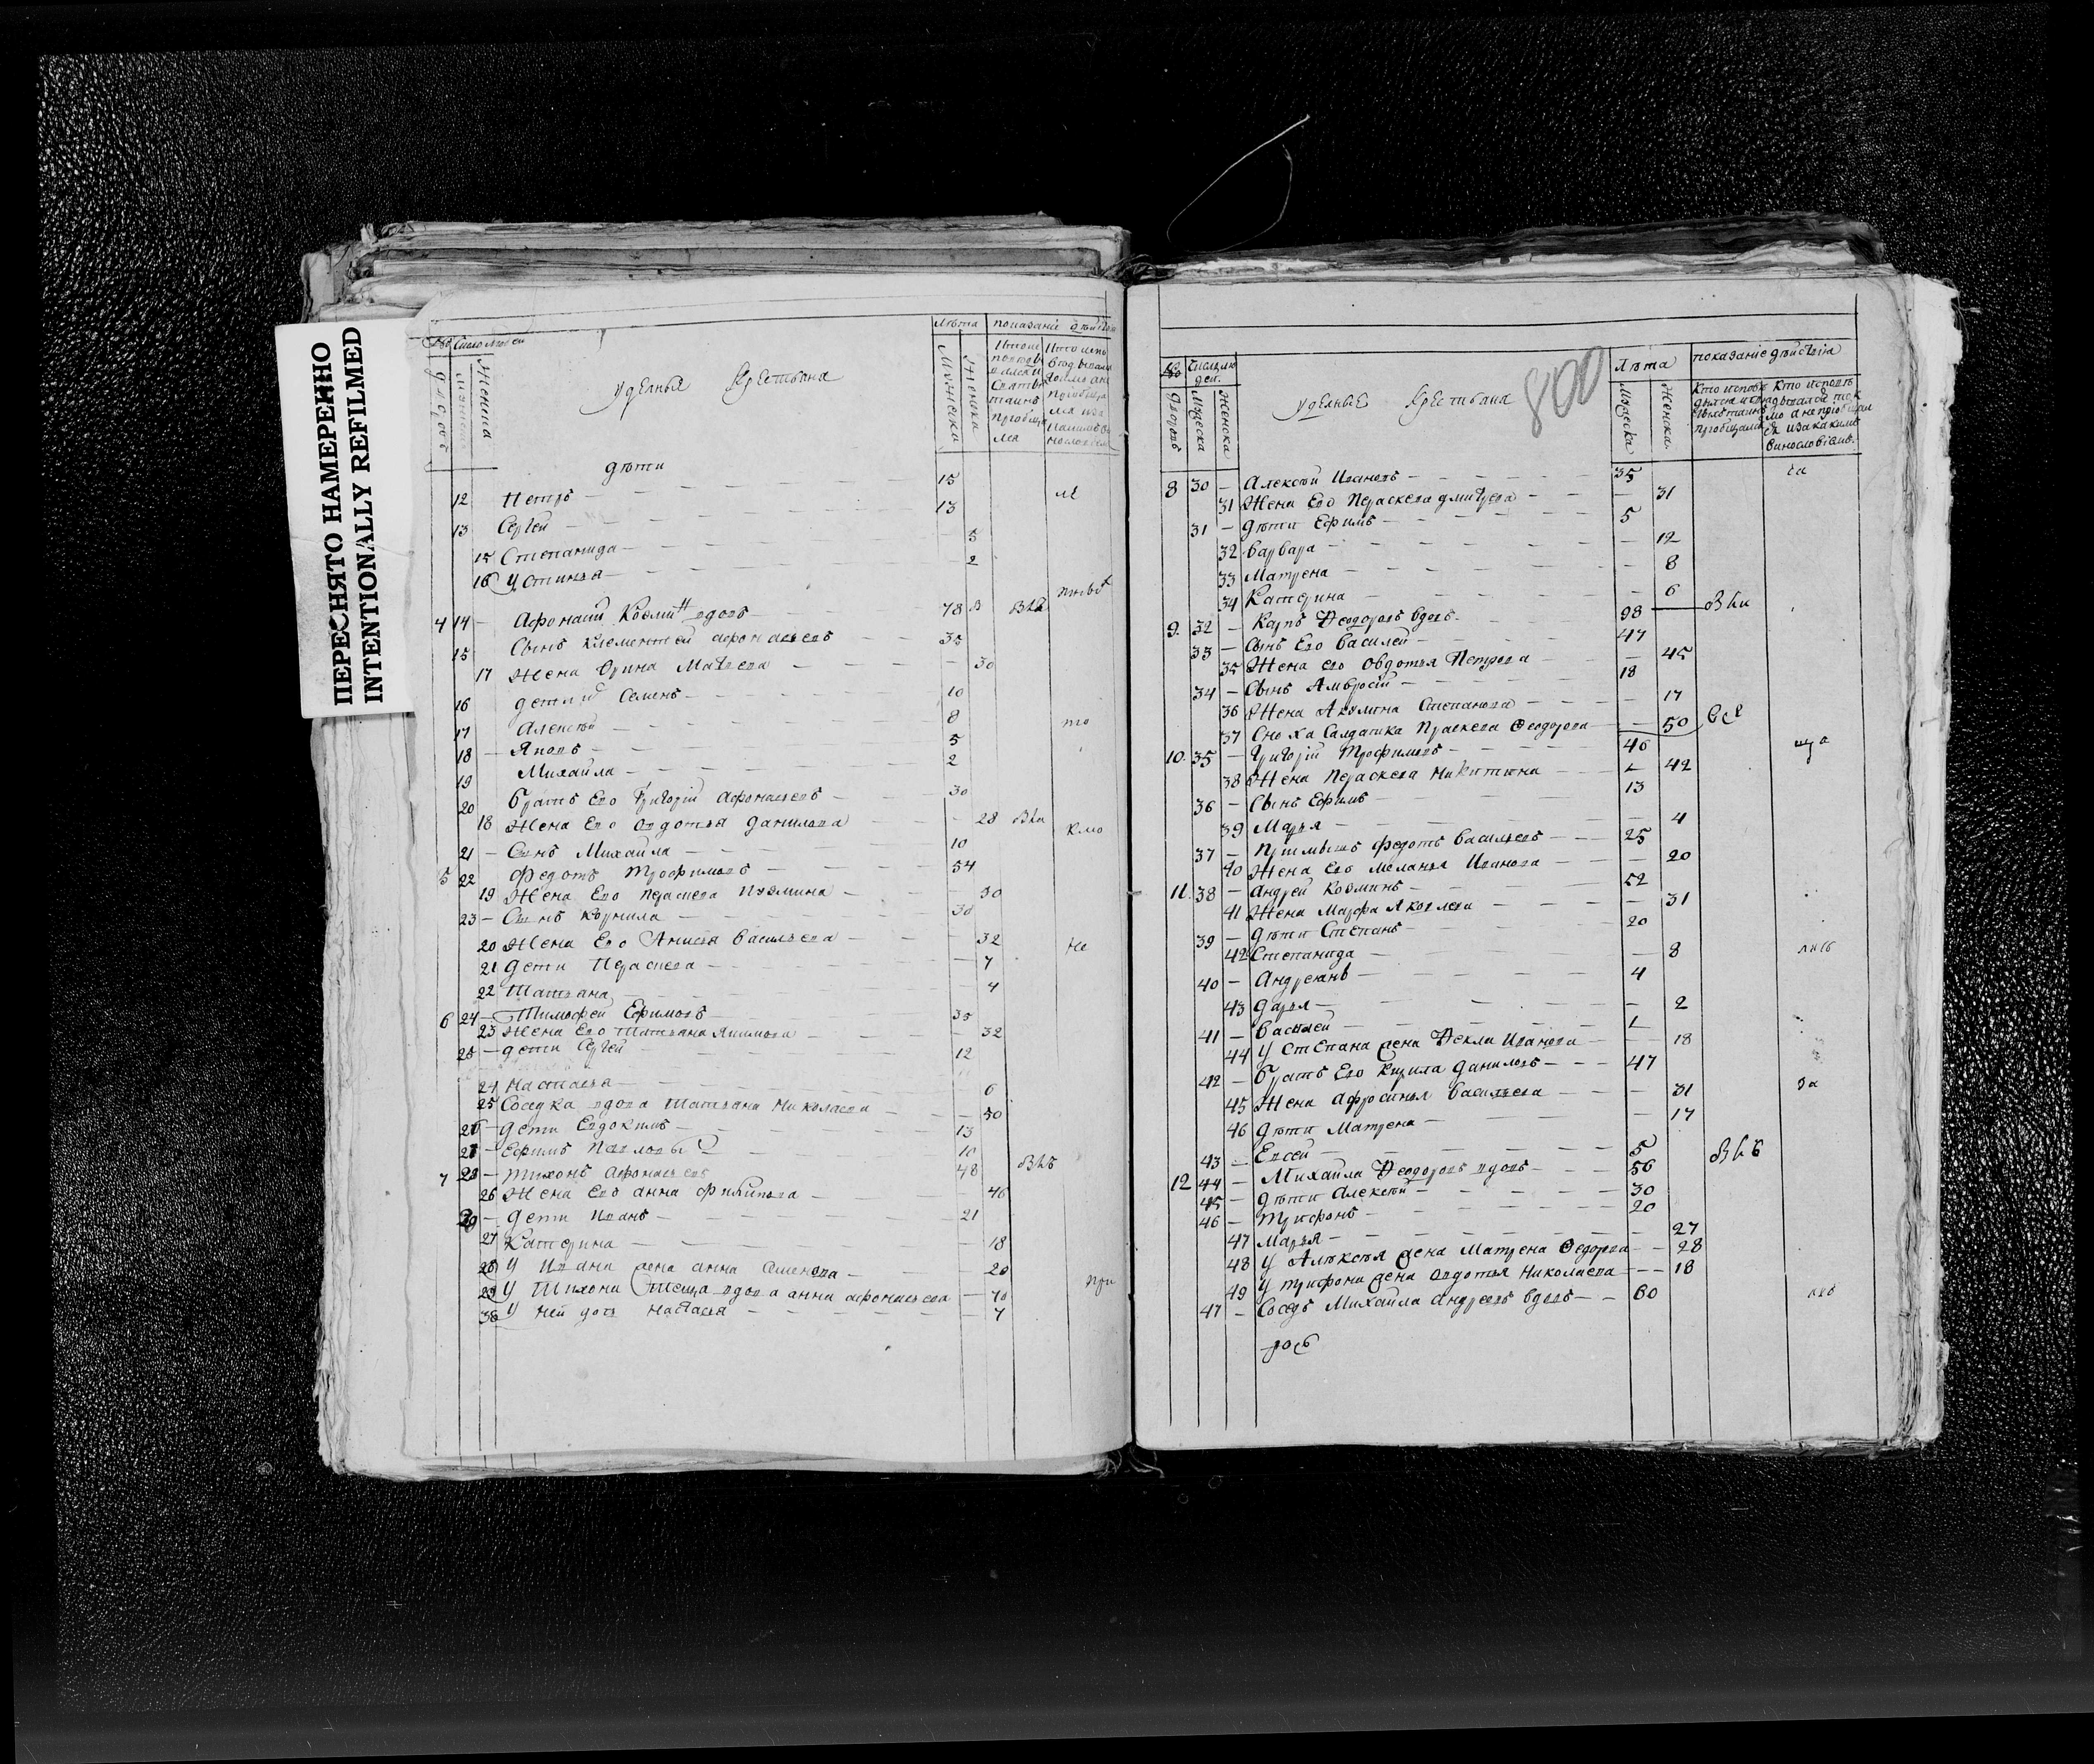 ПЕРЕСНЯТО НАМЕРЕННО
INTENTIONALLY REFILMED
Мужеска
Женска
Лѣта
показаніе дѣйства
Уделныя Крестьяна
дѣти
12 Петръ — 15
13 Сергей — 13
15 Степанида — 5
16 Устинья — 2
4 14 Афонасий Козмин вдовъ 78
15 Сынъ Клементей Афонасьевъ — 35
17 Жена Орина Матвеева — 30
16 дети Семенъ — 10
17 Алексѣй — 8
18 — Яковъ — 5
19 Михайла — 2
20 братъ Его Григорій Афонасьевъ — 30
18 Жена Его Овдотья Данилова — 28
21 — Сынъ Михайла — 10
5 22 Федотъ Трофимовъ — 54
19 Жена Его Параскева Козмина — 50
23 — Сынъ Корнила — 30
20 Жена Его Анисья Васильева — 32
21 Дети Параскева — 7
22 Татьяна — 4
6 24 — Тимофей Ефимовъ — 35
23 Жена Его Татьяна Якимова — 32
25 — дети Сергей — 12
24 Настасья — 6
25 Соседка вдова Татьяна Николаева — 50
26 — дети Евдокимъ — 13
27 — Ефимъ Павловы — 10
7 28 — Тихонъ Афонасьевъ 48
26 Жена Его Анна Филипова — 46
29 — дети Иванъ — 21
27 Катерина — 18
28 У Ивана жена Анна Семенова — 20
29 У Тихона теща вдова Анна Афонасьева — 70
30 У ней дочь Настасья — 7
800
Лѣта
показаніе дѣйствія
Мужеска
Женска
Уделные Крестьяна
8 30 — Алексѣй Ивановъ — 35
31 Жена Его Параскева Дмитрева — 31
31 — дѣти Ефимъ — 5
32 Варвара — 12
33 Матрена — 8
34 Катерина — 6
9. 32 — Карпъ Ѳеодоровъ вдовъ. 98
33 — Сынъ Его Василей — 47
35 Жена его Овдотья Петрова — 45
34 — Сынъ Амвросій — 18
36 Жена Акулина Степанова — 17
37 Сноха Салдатка Праскева Ѳеодорова — 50
10. 35 — Григорій Трофимовъ — 46
38 Жена Параскева Никитина — 42
36 — Сынъ Ефимъ — 13
39 Марья — 4
37 — Примышъ Федотъ Васильевъ — 25
40 Жена Его Меланья Иванова — 20
11. 38 — Андрей Козминъ — 52
41 Жена Марфа Яковлева — 31
39 — дѣти Степанъ — 20
42 Степанида — 8
40 — Андреянъ — 4
43 Дарья — 2
41 — Василей — 1
44 У Степана жена Ѳекла Иванова — 18
42 — братъ Его Кирила Даниловъ — 47
45 Жена Афросинья Васильева — 31
46 дѣти Матрена — 17
43 — Евсей — 5
12 44 — Михайла Ѳеодоровъ вдовъ — 56
45 — дѣти Алексѣй — 30
46 — Трифонъ — 20
47 Марья — 27
48 У Алѣксѣя жена Матрена Ѳедорова — 28
49 У Трифона жена Овдотья Николаева — 18
47 — Соседъ Михайла Андреевъ вдовъ — 60